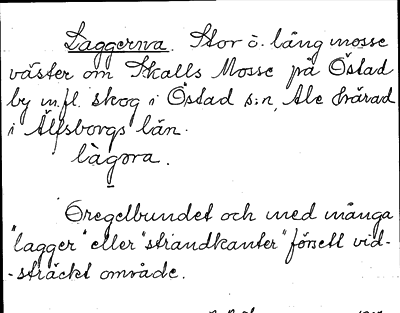 Laggerna. Stor o. lång mosse
väster om Skalls Mosse på Östad
by m.fl. skog i Östad s:n, Ale härad
i Älfsborgs län.
làgora.
Oregelbundet och med många
"lagger" eller "strandkanter" försett vid-
-sträckt område.